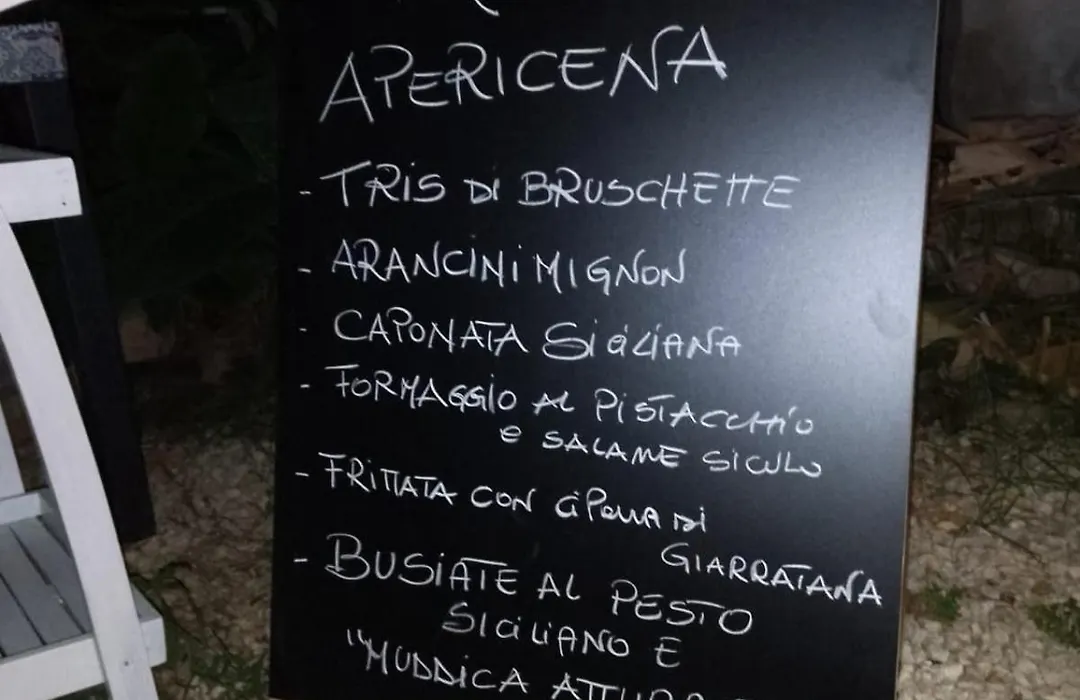 APERICENA
- TRIS DI BRUSCHETTE
- ARANCINI MIGNON
- CAPONATA SICILIANA
- FORMAGGIO AL PISTACCHIO
e SALAME SICULO
- FRITTATA CON CIPOLLA DI
GIARRATANA
- BUSIATE AL PESTO
SICILIANO E
"MUDDICA